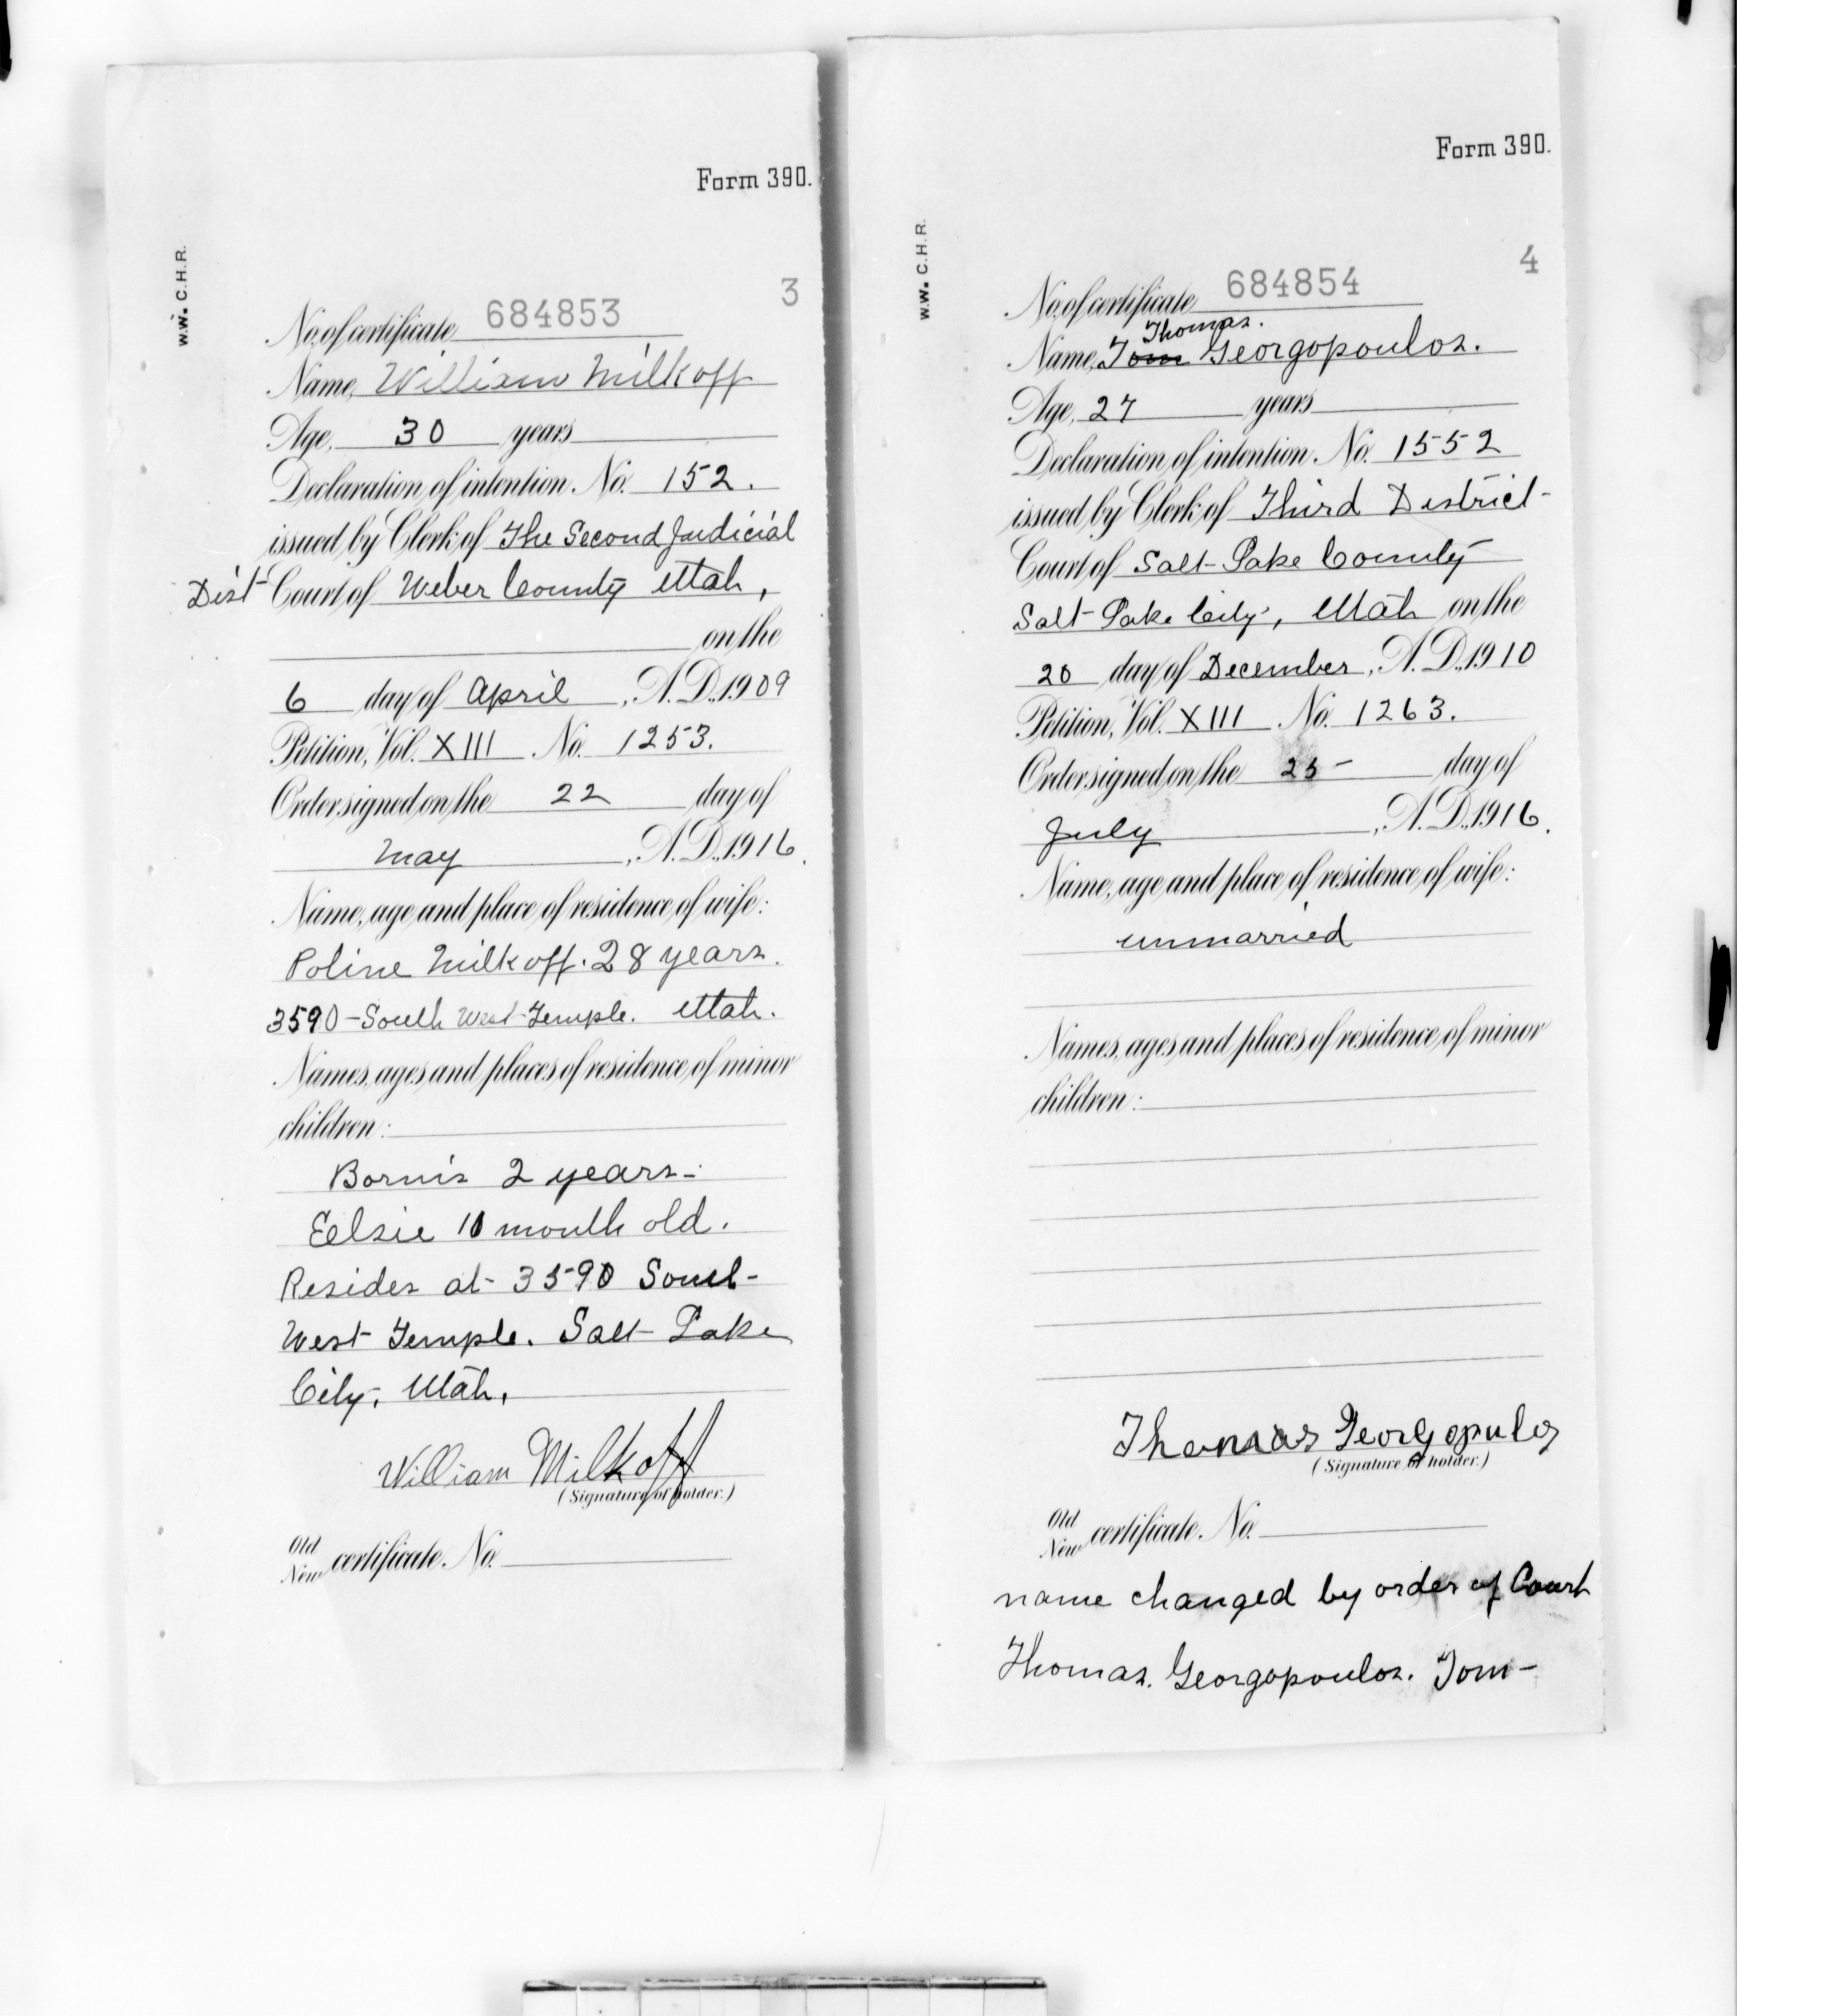 Form 390.
W.W. C.H.R.
3
No. of certificate 684853
Name, William Milkoff
Age, 30 years
Declaration of intention. No. 152.
issued by Clerk of The Second Judicial
Dist Court of Weber County Utah,
on the
6 day of April, A.D. 1909
Petition, Vol. XIII No. 1253.
Order signed on the 22 day of
May, A.D. 1916.
Name, age and place of residence of wife:
Poline Milkoff. 28 years.
3590 - South West Temple. Utah.
Names, ages and places of residence of minor
children:
Borris 2 years-
Eelsie 10 month old.
Resides at 3590 Sout-
West Temple. Salt Lake
City, Utah,
William Milkoff
(Signature of holder.)
Old
New certificate. No.
Form 390.
W.W. C.H.R.
4
No. of certificate 684854
Thomas.
Name, Tom Georgopoulos.
Age, 27 years
Declaration of intention. No. 1552
issued by Clerk of Third District
Court of Salt Lake County
Salt Lake City, Utah on the
20 day of December, A.D. 1910
Petition, Vol. XIII No. 1263.
Order signed on the 25 - day of
July, A.D. 1916.
Name, age and place of residence of wife:
unmarried
Names, ages and places of residence of minor
children:
Thomas Georgopulos
(Signature of holder.)
Old
New certificate. No.
name changed by order of Court
Thomas. Georgopoulos. Tom-